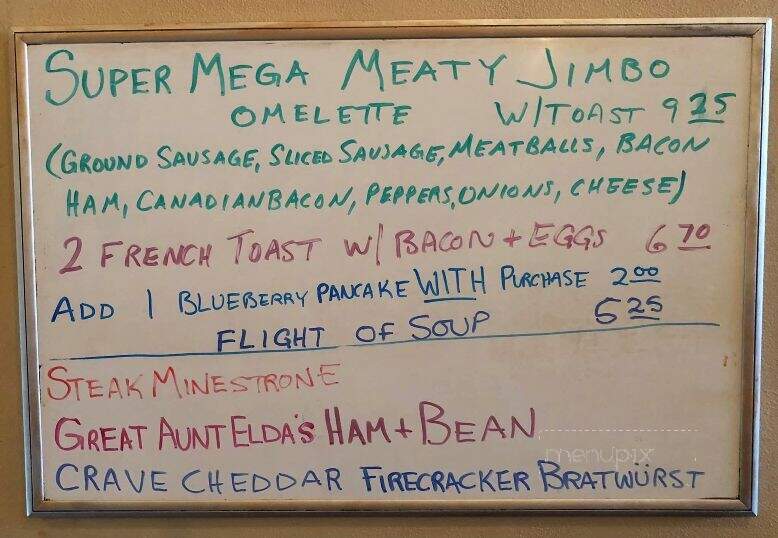 SUPER MEGA MEATY JIMBO
OMELETTE W/TOAST 9 25
(GROUND SAUSAGE, SLICED SAUSAGE, MEATBALLS, BACON
HAM, CANADIAN BACON, PEPPERS, ONIONS, CHEESE)
2 FRENCH TOAST W/ BACON + EGGS 6 70
ADD 1 BLUEBERRY PANCAKE WITH PURCHASE 2 00
FLIGHT OF SOUP 5 25
STEAK MINESTRONE
GREAT AUNT ELDA'S HAM + BEAN
menupix
CRAVE CHEDDAR FIRECRACKER BRATWÜRST